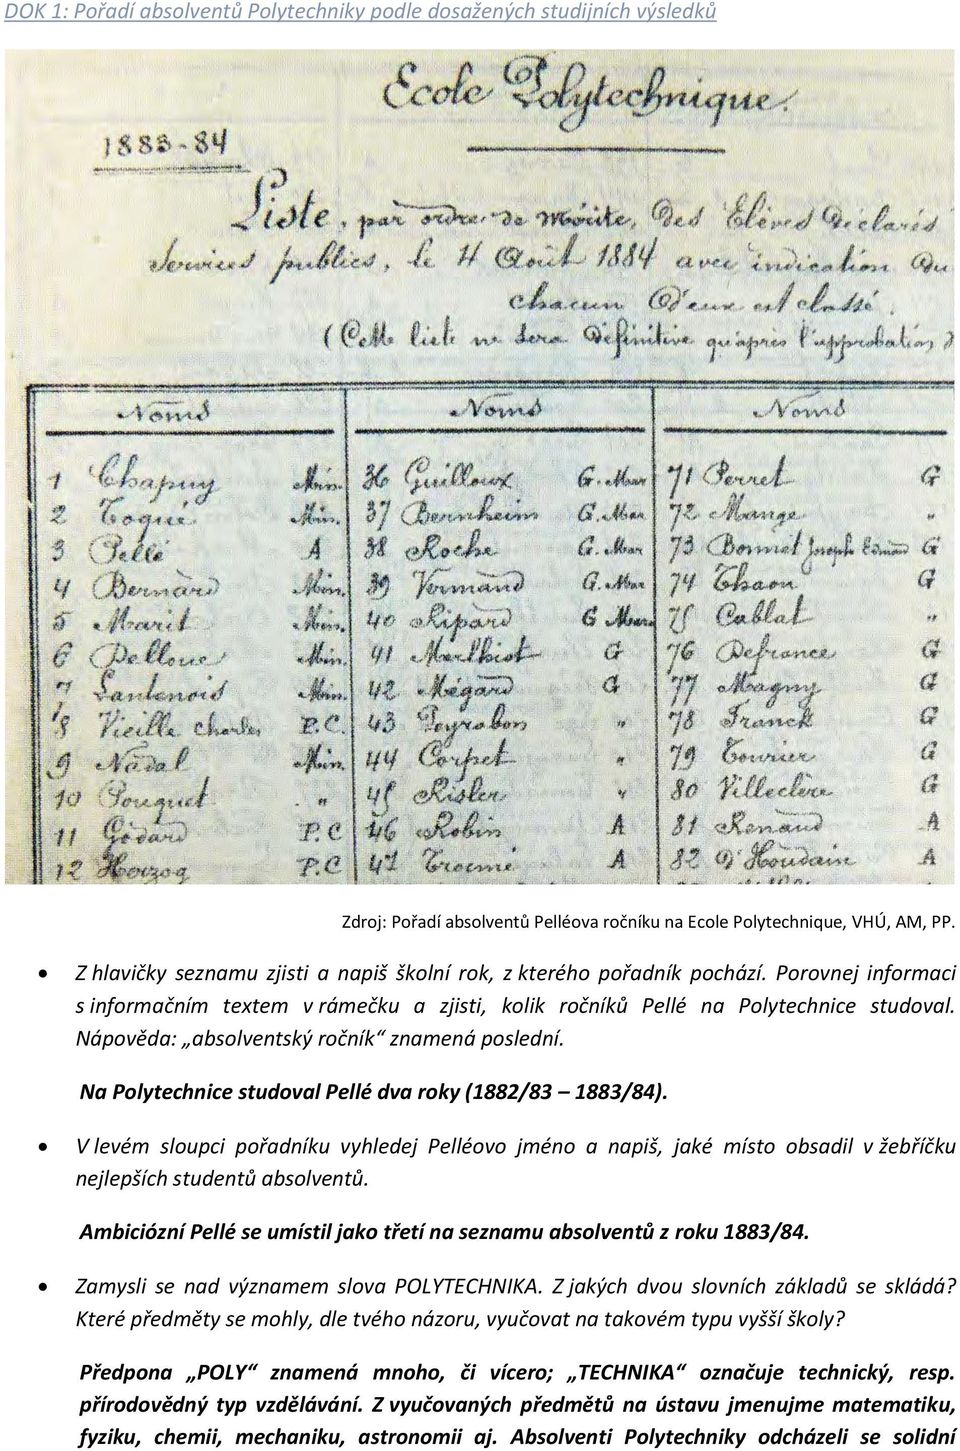 DOK 1: Pořadí absolventů Polytechniky podle dosažených studijních výsledků
Ecole Polytechnique.
1883-84
Liste, par ordre de mérite, des Elèves déclarés
Services publics, le 4 Août 1884 avec indication du
chacun d'eux est classé.
(Cette liste ne sera définitive qu'après l'approbation d
Noms Noms Noms
1 Chapuy Min. 36 Guilloux G. Mar 71 Perret G
2 Toqué Min. 37 Bernheim G. Mar 72 Mange "
3 Pellé A 38 Roche G. Mar 73 Bonnet Joseph Edmond G
4 Bernard Min. 39 Vermand G. Mar 74 Thaon G
5 Marit Min. 40 Ripard G Mar. 75 Cablat "
6 Delloue Min. 41 Merlhiot G 76 Defrance G
7 Lantenois Min. 42 Mégard G 77 Magny G
8 Vieille Charles P.C. 43 Peyrabon " 78 Franck G
9 Nadal Min. 44 Corpet " 79 Tourier G
10 Pouquet " 45 Risler " 80 Villeclère G
11 Godard P.C 46 Robin A 81 Renaud A
12 Herzog P.C 47 Trocmé A 82 D'Houdain A
Zdroj: Pořadí absolventů Pelléova ročníku na Ecole Polytechnique, VHÚ, AM, PP.
• Z hlavičky seznamu zjisti a napiš školní rok, z kterého pořadník pochází. Porovnej informaci
s informačním textem v rámečku a zjisti, kolik ročníků Pellé na Polytechnice studoval.
Nápověda: „absolventský ročník“ znamená poslední.
Na Polytechnice studoval Pellé dva roky (1882/83 – 1883/84).
• V levém sloupci pořadníku vyhledej Pelléovo jméno a napiš, jaké místo obsadil v žebříčku
nejlepších studentů absolventů.
Ambiciózní Pellé se umístil jako třetí na seznamu absolventů z roku 1883/84.
• Zamysli se nad významem slova POLYTECHNIKA. Z jakých dvou slovních základů se skládá?
Které předměty se mohly, dle tvého názoru, vyučovat na takovém typu vyšší školy?
Předpona „POLY“ znamená mnoho, či vícero; „TECHNIKA“ označuje technický, resp.
přírodovědný typ vzdělávání. Z vyučovaných předmětů na ústavu jmenujme matematiku,
fyziku, chemii, mechaniku, astronomii aj. Absolventi Polytechniky odcházeli se solidní